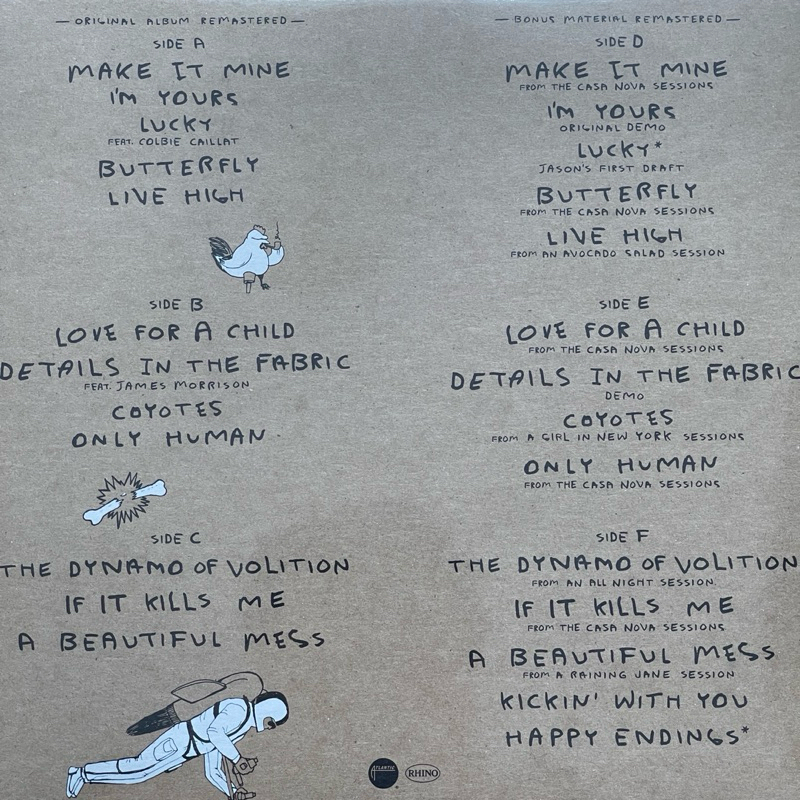 — ORIGINAL ALBUM REMASTERED —
SIDE A
MAKE IT MINE
I'M YOURS
LUCKY
FEAT. COLBIE CAILLAT
BUTTERFLY
LIVE HIGH
SIDE B
LOVE FOR A CHILD
DETAILS IN THE FABRIC
FEAT. JAMES MORRISON
COYOTES
ONLY HUMAN
SIDE C
THE DYNAMO OF VOLITION
IF IT KILLS ME
A BEAUTIFUL MESS
— BONUS MATERIAL REMASTERED —
SIDE D
MAKE IT MINE
FROM THE CASA NOVA SESSIONS
I'M YOURS
ORIGINAL DEMO
LUCKY*
JASON'S FIRST DRAFT
BUTTERFLY
FROM THE CASA NOVA SESSIONS
LIVE HIGH
FROM AN AVOCADO SALAD SESSION
SIDE E
LOVE FOR A CHILD
FROM THE CASA NOVA SESSIONS
DETAILS IN THE FABRIC
DEMO
COYOTES
FROM A GIRL IN NEW YORK SESSIONS
ONLY HUMAN
FROM THE CASA NOVA SESSIONS
SIDE F
THE DYNAMO OF VOLITION
FROM AN ALL NIGHT SESSION
IF IT KILLS ME
FROM THE CASA NOVA SESSIONS
A BEAUTIFUL MESS
FROM A RAINING JANE SESSION
KICKIN' WITH YOU
HAPPY ENDINGS*
ATLANTIC
RHINO